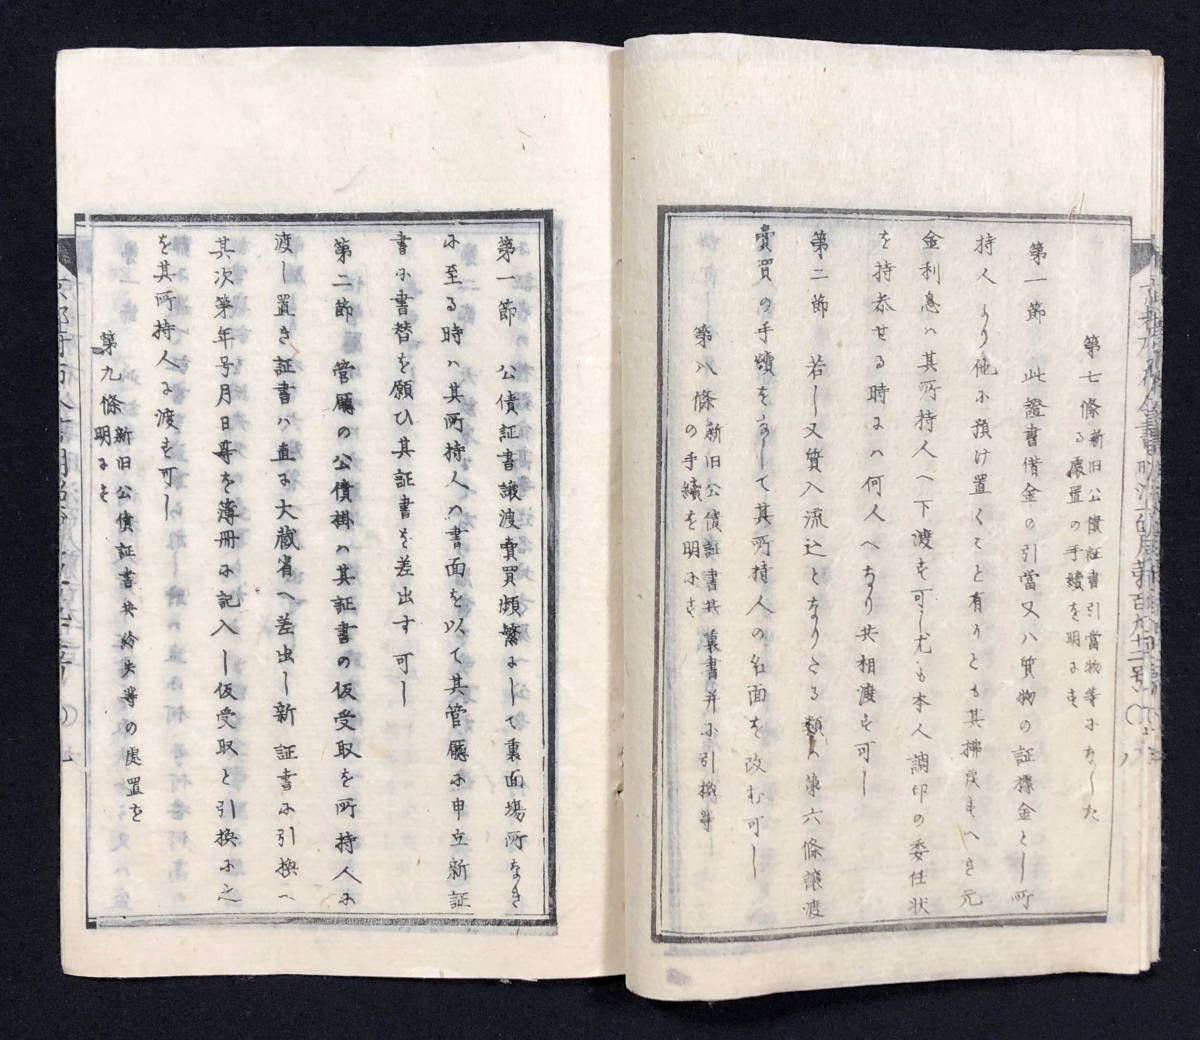 第七條新旧公債証書引當物等ニなした
る處置の手續を明にす
第一節 此證書借金の引當又ハ質物の証據金とし所
持人より他に預け置くこと有りとも其拂戻すへき元
金利息ハ其所持人へ下渡す可し尤も本人調印の委任状
を持参せる時は何人へなり共相渡す可し
第二節 若し又質入流込となりたる類ハ第六條譲渡
賣買の手續をなして其所持人の名面を改む可し
第八條新旧公債証書共裏書并に引換等
の手續を明にす
第一節 公債証書譲渡賣買頻繁にして裏面場所なき
に至る時ハ其所持人ハ書面を以て其管廳に申立新証
書に書替を願ひ其証書を差出す可し
第二節 管廳の公債掛ハ其証書の仮受取を所持人に
渡し置き証書ハ直に大蔵省へ差出し新証書に引換へ
其次第年号月日等を簿冊に記入し仮受取と引換に之
を其所持人に渡す可し
第九條新旧公債証書共紛失等の處置を
明にす